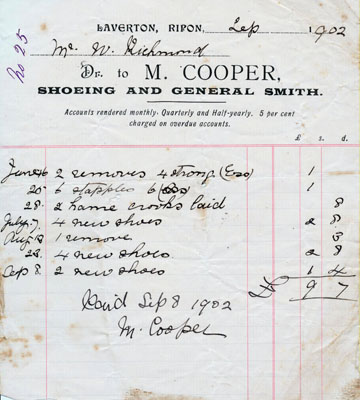 No 25
LAVERTON, RIPON, Sep 1902
Mr W. Richmond
Dr. to M. COOPER,
SHOEING AND GENERAL SMITH.
Accounts rendered monthly. Quarterly and Half-yearly. 5 per cent
charged on overdue accounts.
£ s. d.
June 16 2 removes 4 strong 1
20 6 stapples 6 1
28 2 hame crooks laid 8
July 7 4 new shoes 2 8
Aug 13 1 remove 3
28 4 new shoes 2 8
Sep 8 2 new shoes 1 4
£ 9 7
Paid Sep 8 1902
M. Cooper